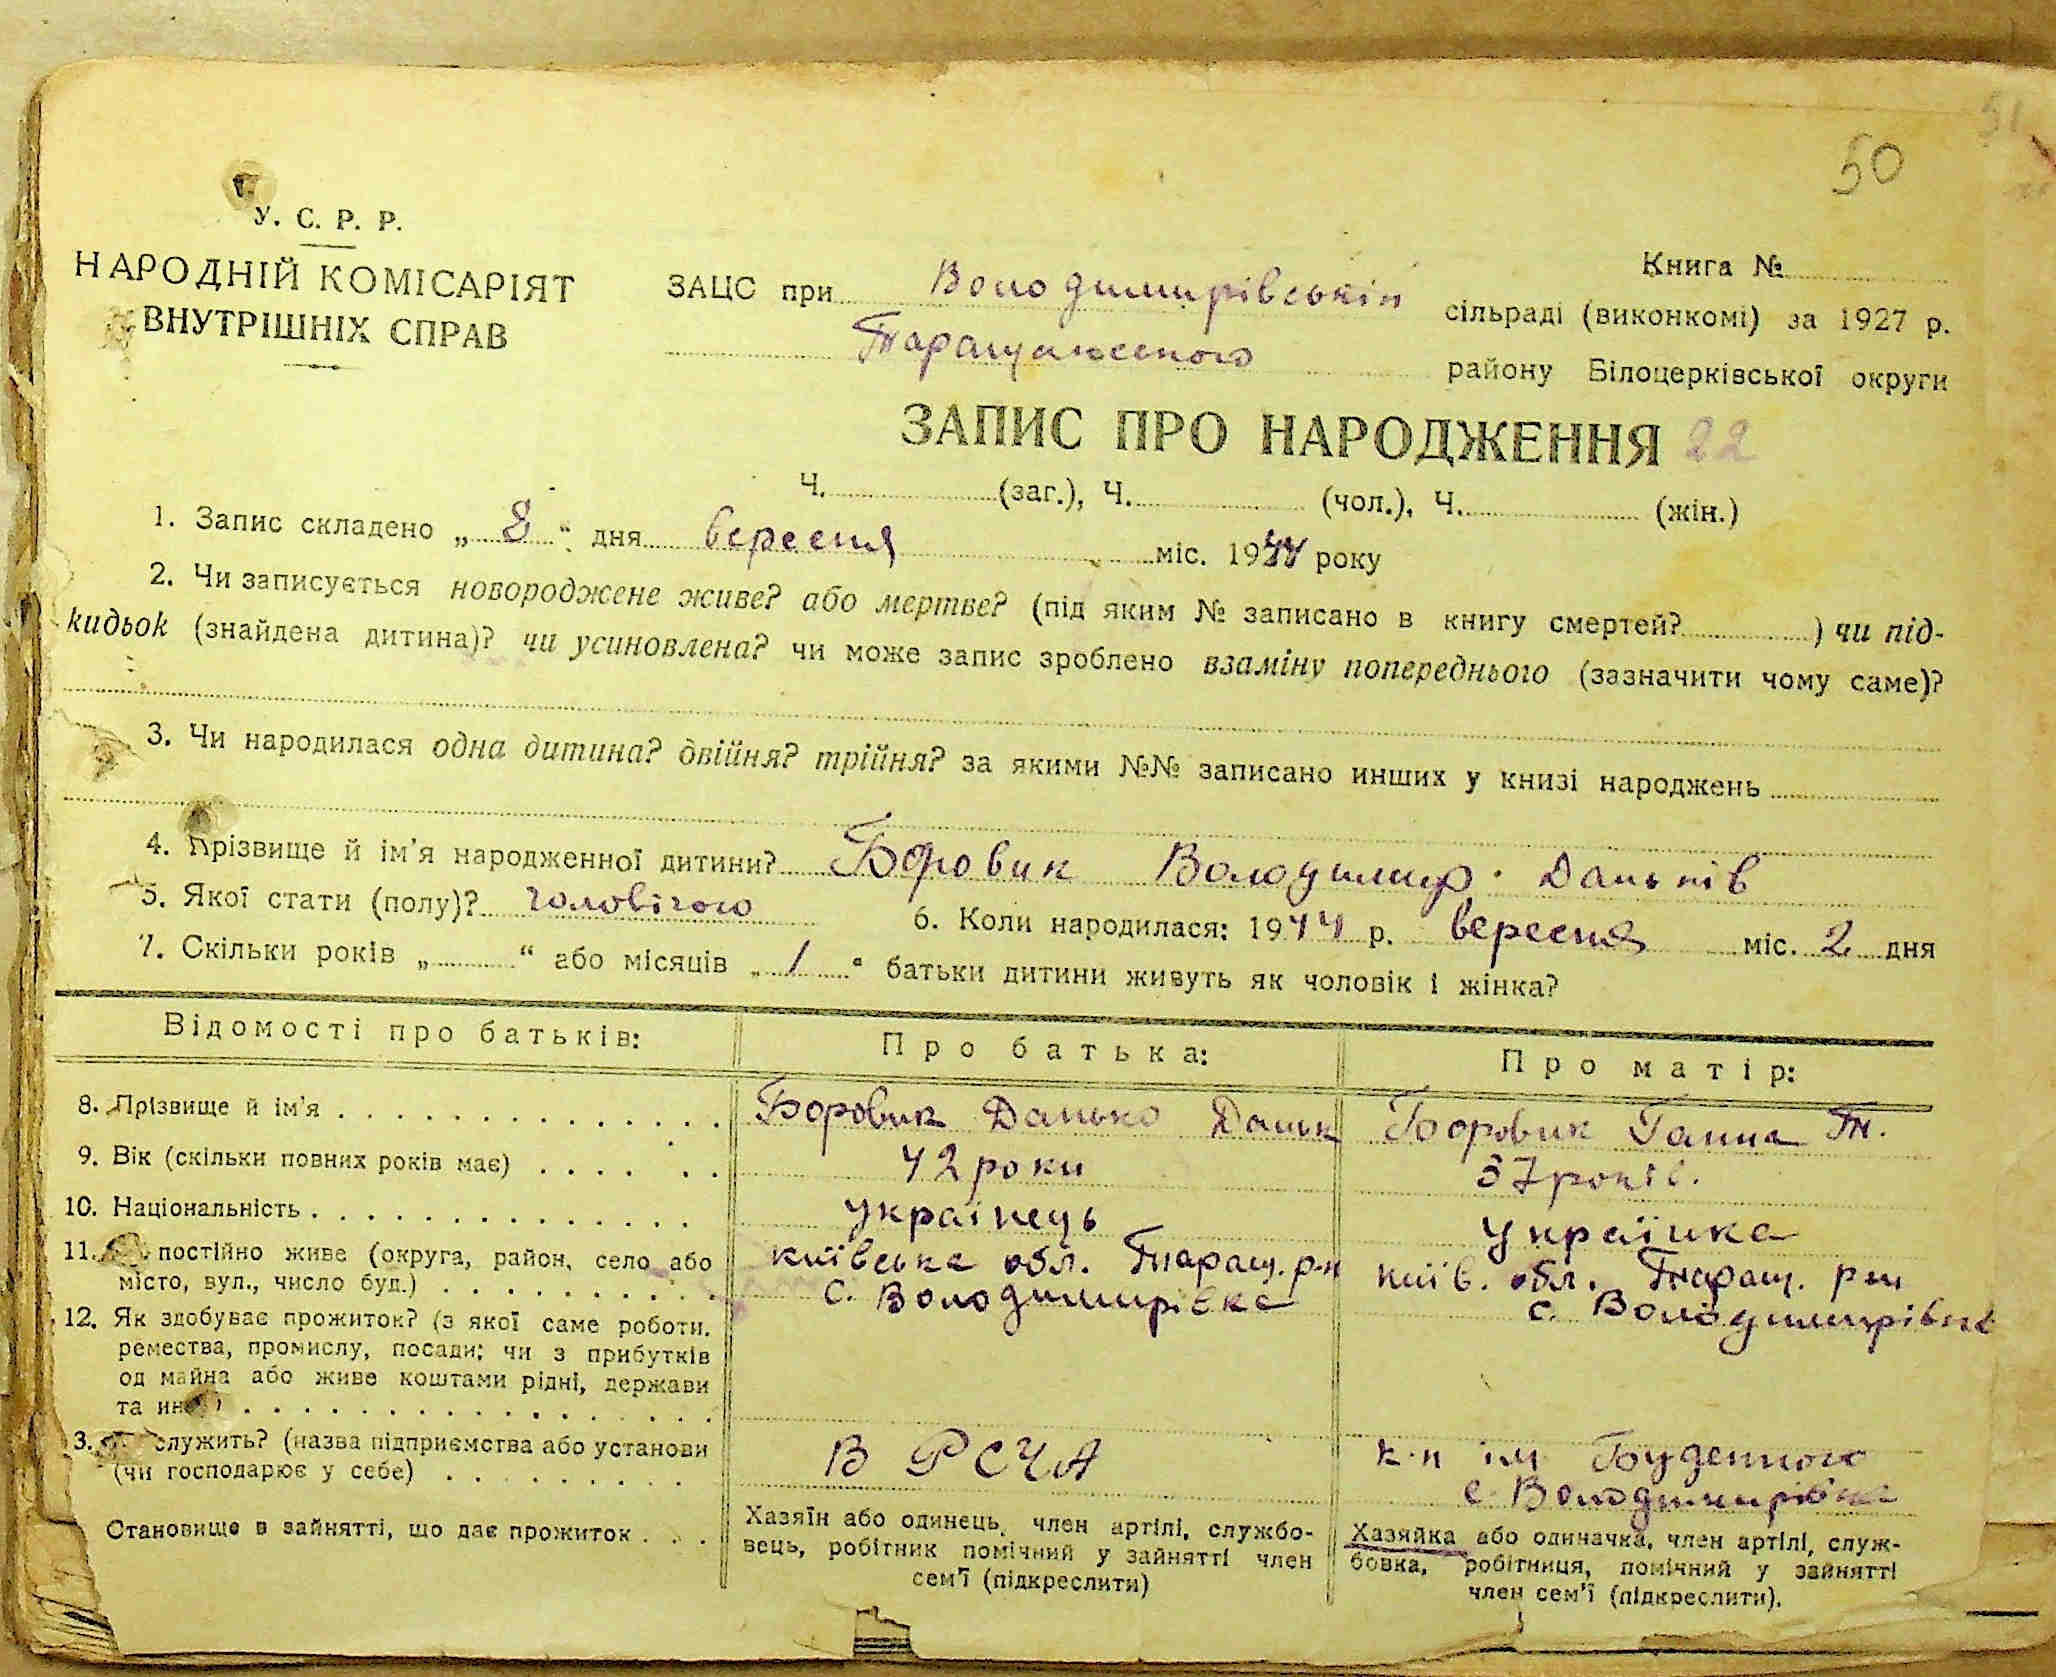 50
51
У. С. Р. Р.
НАРОДНІЙ КОМІСАРІЯТ
ВНУТРІШНІХ СПРАВ
Книга №
ЗАЦС при Володимирівській сільраді (виконкомі) за 1927 р.
Таращанського району Білоцерківської округи
ЗАПИС ПРО НАРОДЖЕННЯ 22
Ч. (заг.), Ч. (чол.), Ч. (жін.)
1. Запис складено „ 8 “ дня вересня міс. 1944 року
2. Чи записується новороджене живе? або мертве? (під яким № записано в книгу смертей? ) чи під-
кидьок (знайдена дитина)? чи усиновлена? чи може запис зроблено взаміну попереднього (зазначити чому саме)?
3. Чи народилася одна дитина? двійня? трійня? за якими №№ записано инших у книзі народжень
4. Прізвище й ім'я народженної дитини? Боровик Володимир Даньків
5. Якої стати (полу)? чоловічого 6. Коли народилася: 1944 р. вересня міс. 2 дня
7. Скільки років „ “ або місяців „ 1 “ батьки дитини живуть як чоловік і жінка?
Відомості про батьків: Про батька: Про матір:
8. Прізвище й ім'я Боровик Данько Даньк Боровик Ганна Тн.
9. Вік (скільки повних років має) 42 роки 37 років.
10. Національність українець українка
11. постійно живе (округа, район, село або київська обл. Таращ. р-н київ. обл. Таращ. р-н
місто, вул., число буд.) с. Володимирівка с. Володимирівка
12. Як здобуває прожиток? (з якої саме роботи,
ремества, промислу, посади; чи з прибутків
од майна або живе коштами рідні, держави
та ин
3. служить? (назва підприємства або установи В РСЧА к-п ім Буденного
(чи господарює у себе) с. Володимирівка
Становище в зайнятті, що дає прожиток
Хазяїн або одинець, член артілі, службо-
вець, робітник помічний у зайнятті член
сем'ї (підкреслити)
Хазяйка або одиначка, член артілі, служ-
бовка, робітниця, помічний у зайнятті
член сем'ї (підкреслити).